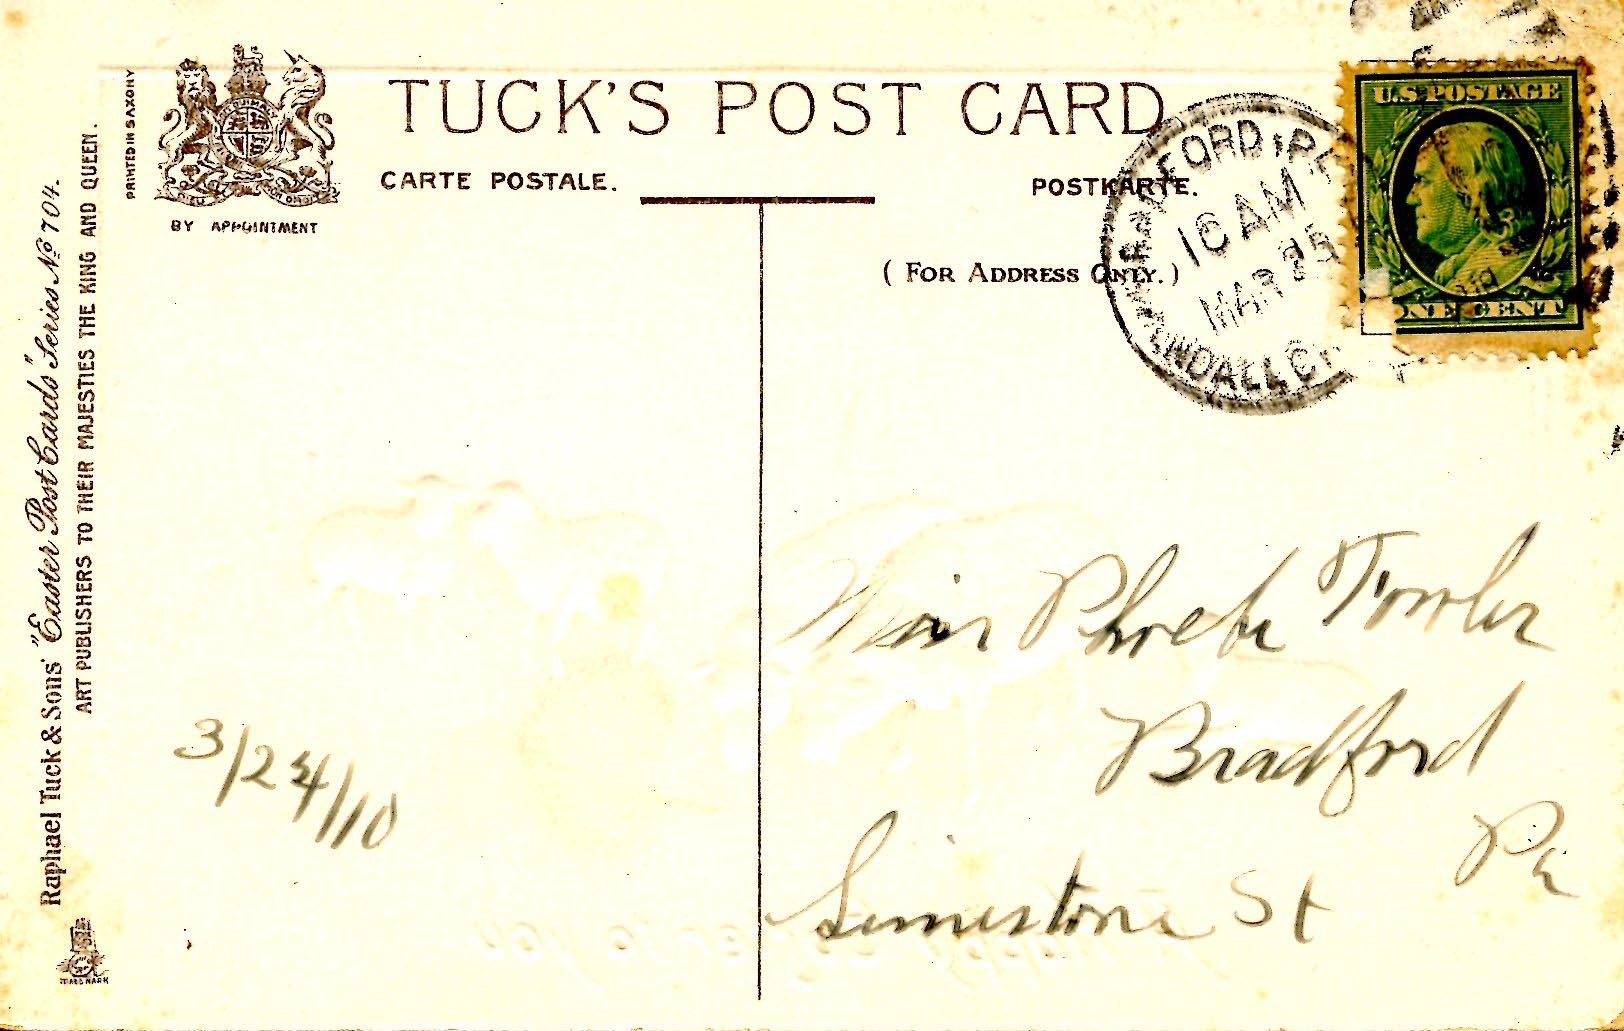 TUCK'S POST CARD
CARTE POSTALE.
POSTKARTE.
(FOR ADDRESS ONLY.)
BY APPOINTMENT
PRINTED IN SAXONY
Raphael Tuck & Sons' "Easter Post Cards" Series No 704.
ART PUBLISHERS TO THEIR MAJESTIES THE KING AND QUEEN.
TRADE MARK
U.S. POSTAGE
ONE CENT
FORD, P
AM
MAR 25
Miss Phoebe Fowler
Bradford
Pa
Limestone St
3/24/10
er to you